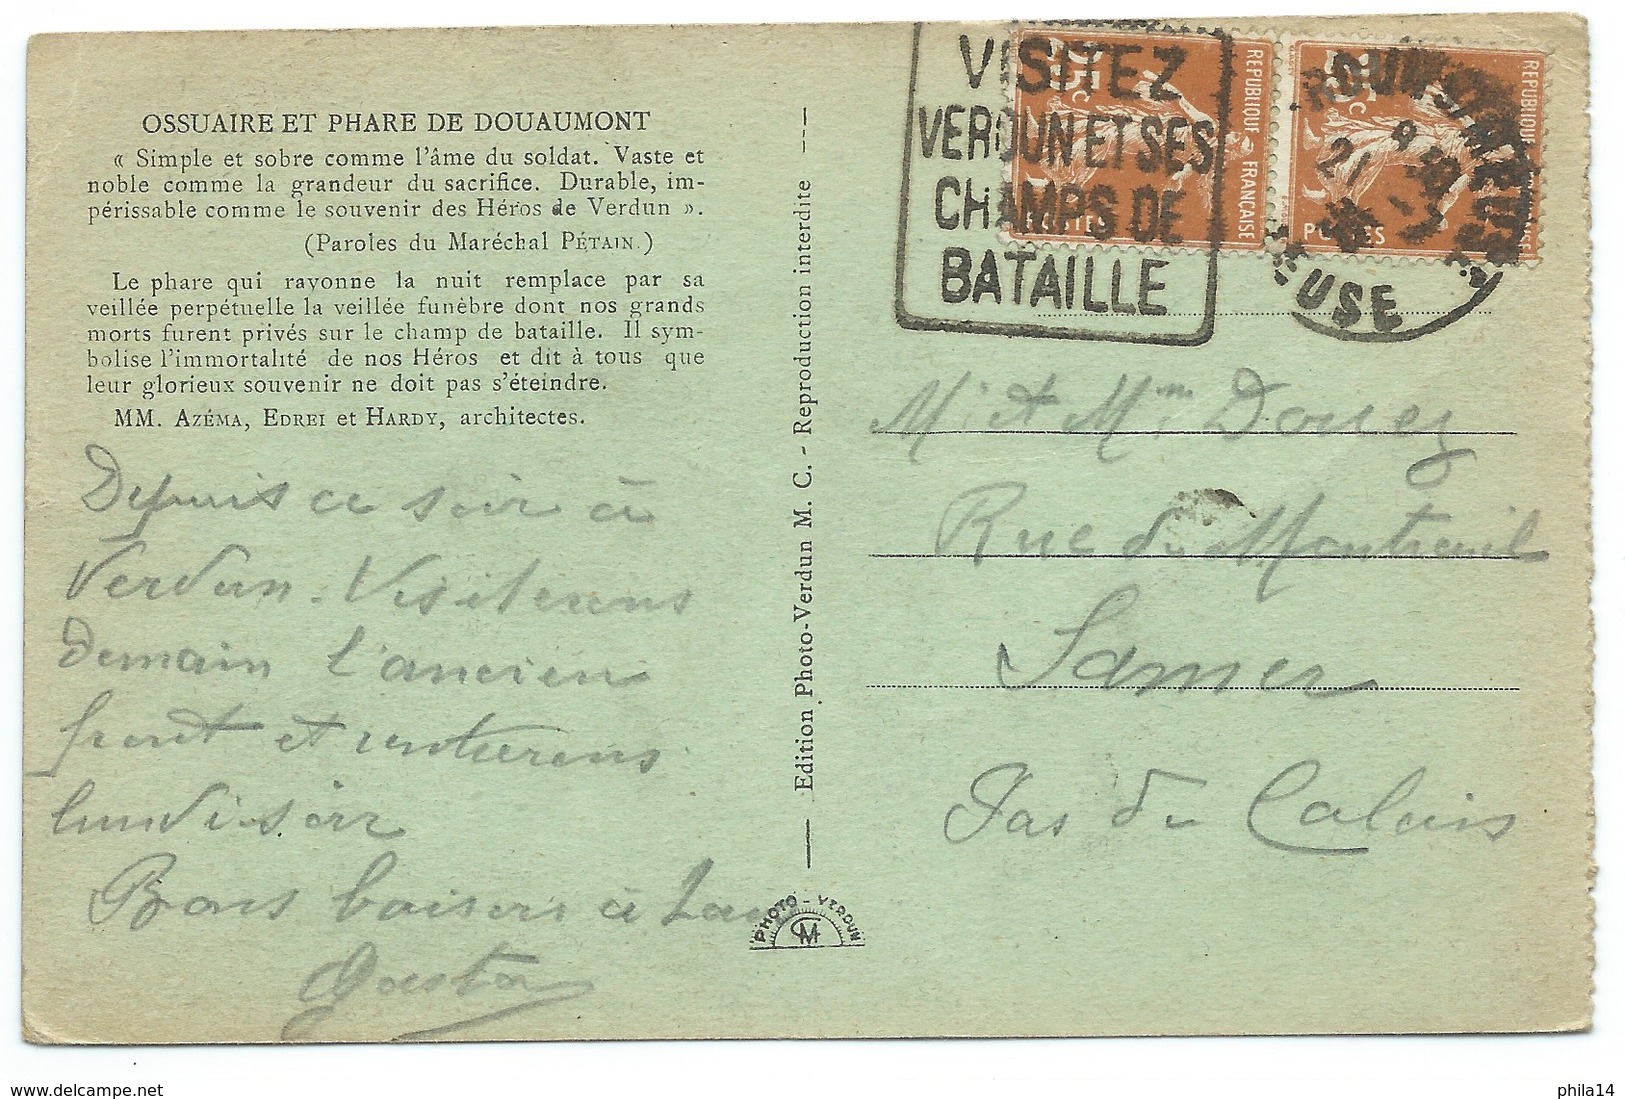 OSSUAIRE ET PHARE DE DOUAUMONT
« Simple et sobre comme l'âme du soldat. Vaste et
noble comme la grandeur du sacrifice. Durable, im-
périssable comme le souvenir des Héros de Verdun ».
(Paroles du Maréchal PÉTAIN.)
Le phare qui rayonne la nuit remplace par sa
veillée perpétuelle la veillée funèbre dont nos grands
morts furent privés sur le champ de bataille. Il sym-
bolise l'immortalité de nos Héros et dit à tous que
leur glorieux souvenir ne doit pas s'éteindre.
MM. AZÉMA, EDREI et HARDY, architectes.
Depuis ce soir à
Verdun. Visiterons
demain l'ancien
front et rentrerons
lundi soir
Bons baisers à
Gaston
Edition Photo-Verdun M. C. - Reproduction interdite
PHOTO - VERDUN
CM
VISITEZ
VERDUN ET SES
CHAMPS DE
BATAILLE
25c
REPUBLIQUE FRANÇAISE
POSTES
25c
REPUBLIQUE FRANÇAISE
POSTES
21
MEUSE
Mr et Mme Douez
Rue du Montreuil
Samer
Pas de Calais
phila14
delcampe.net